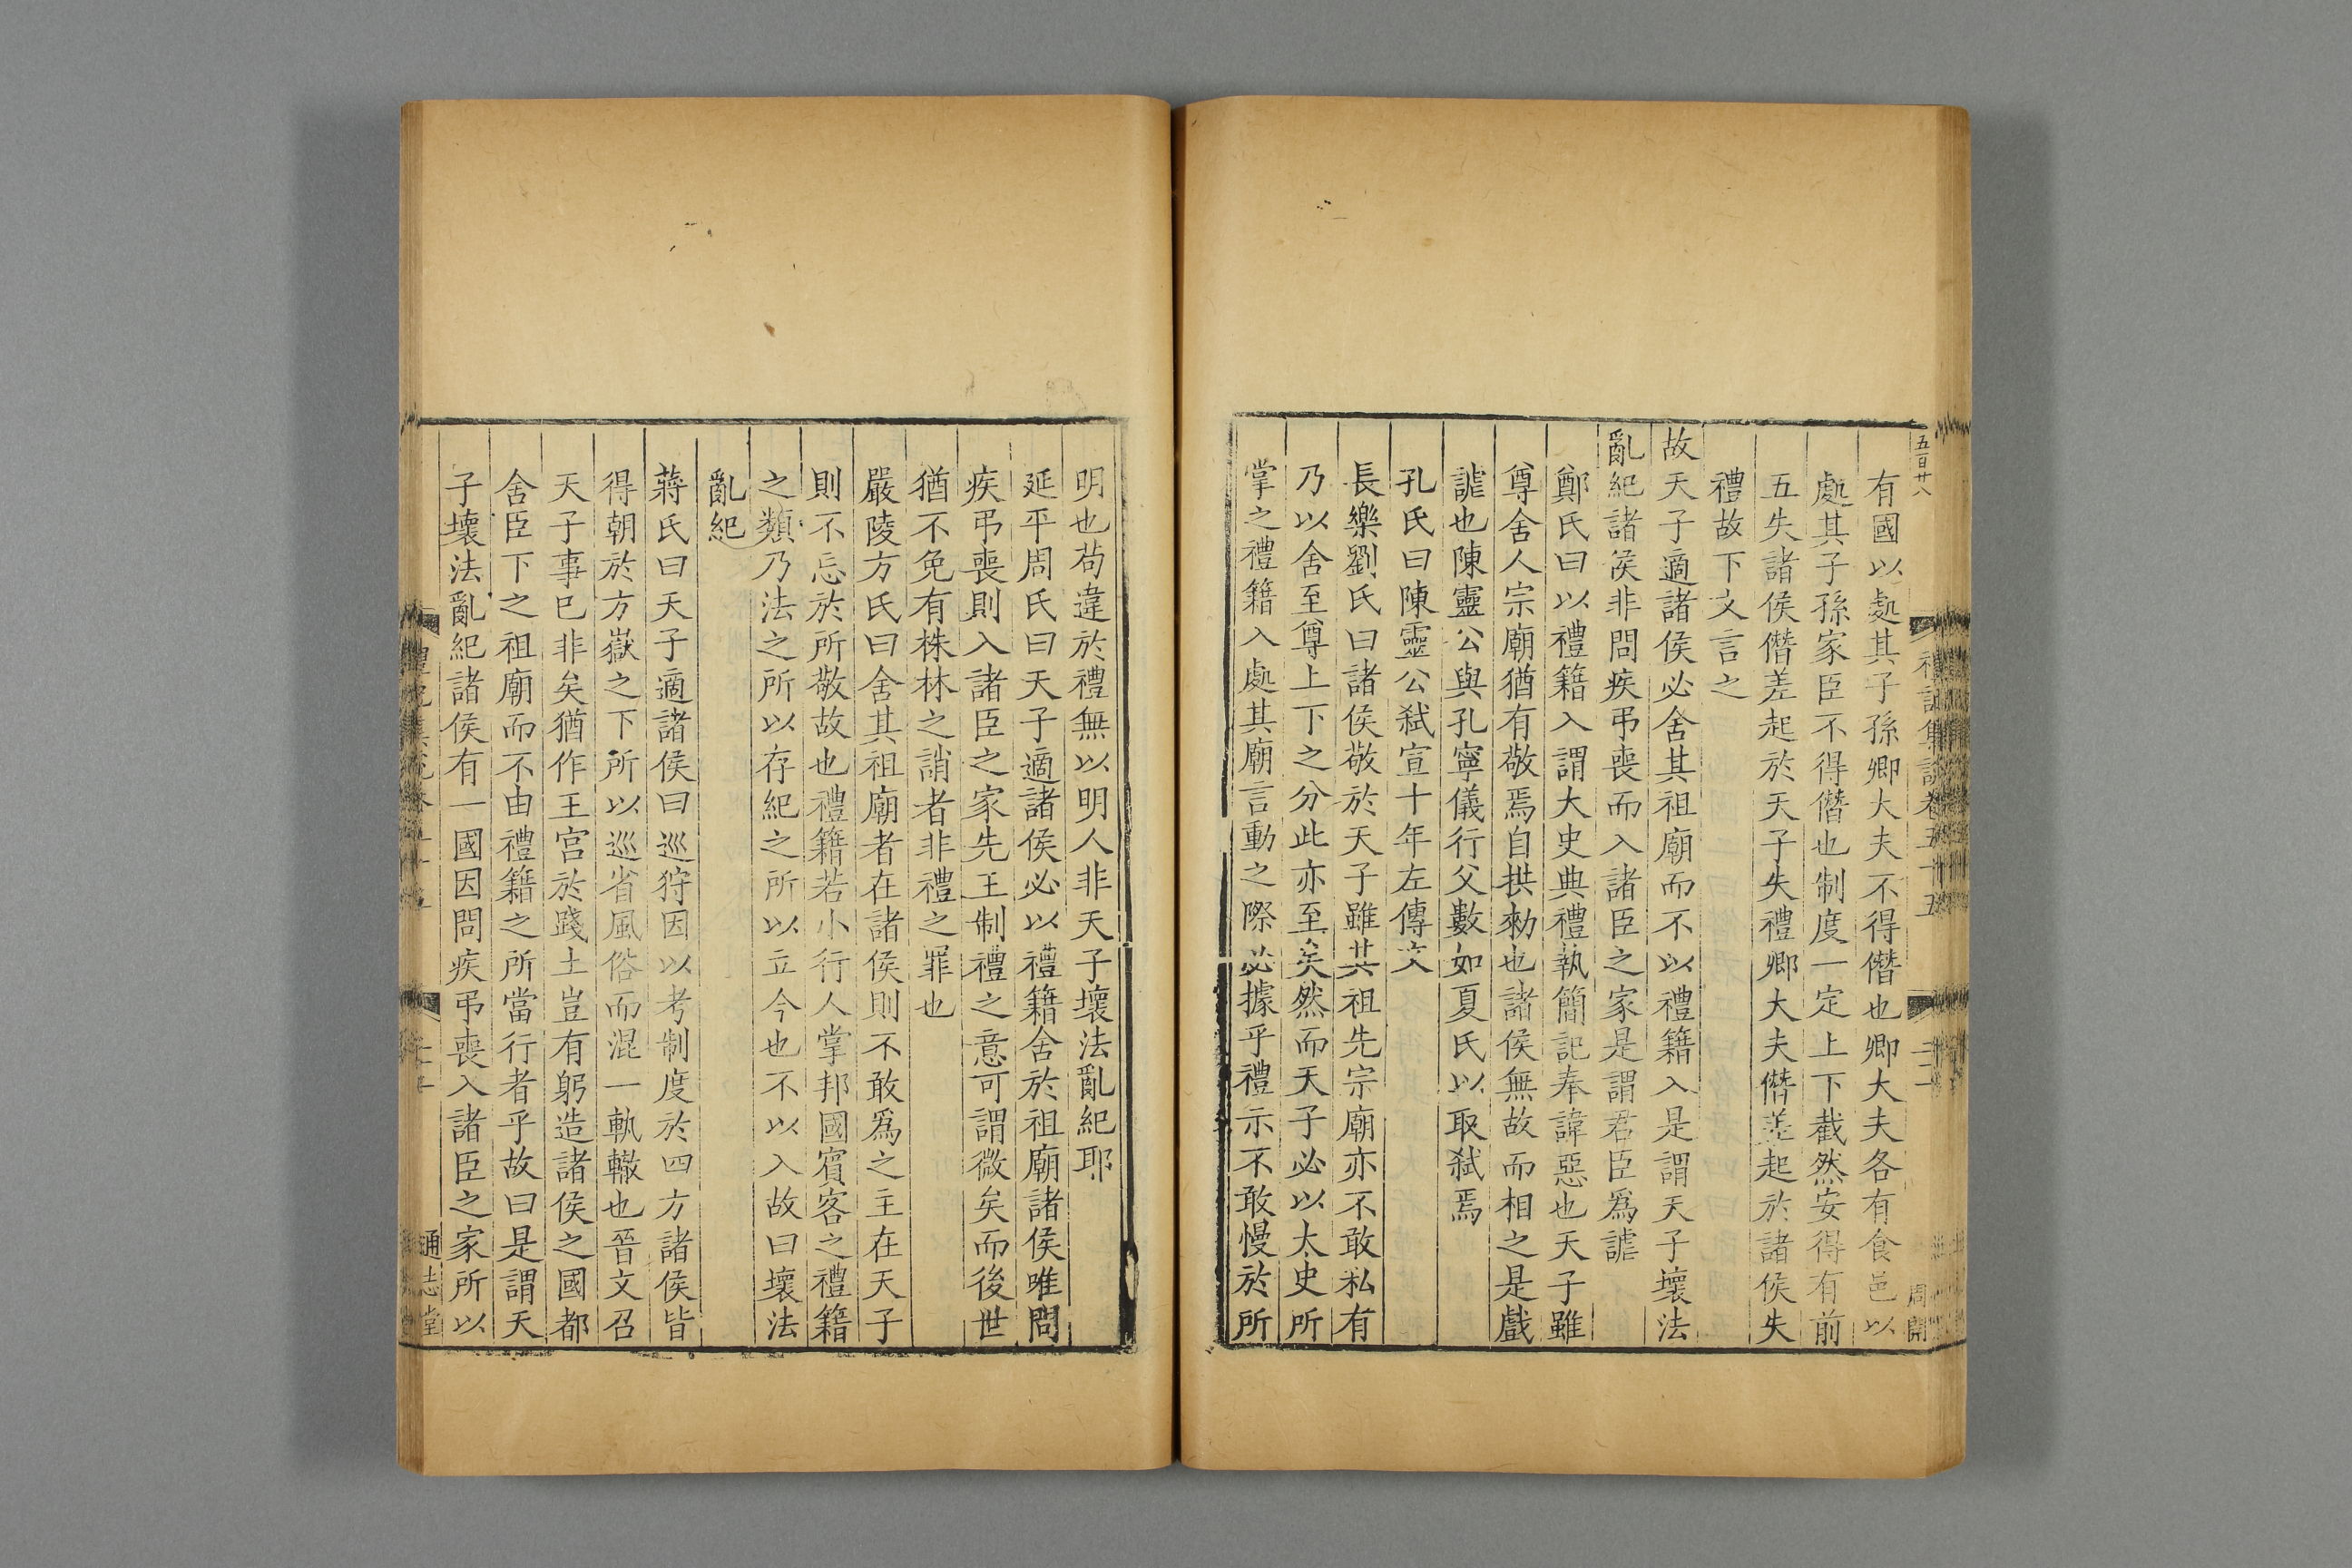 五百廿八
禮記集說卷五十五
周開
有國以處其子孫卿大夫不得僭也卿大夫各有食邑以
處其子孫家臣不得僭也制度一定上下截然安得有前
五失諸侯僭差起於天子失禮卿大夫僭差起於諸侯失
禮故下文言之
故天子適諸侯必舍其祖廟而不以禮籍入是謂天子壞法
亂紀諸侯非問疾弔喪而入諸臣之家是謂君臣爲謔
鄭氏曰以禮籍入謂大史典禮執簡記奉諱惡也天子雖
尊舍人宗廟猶有敬焉自拱勑也諸侯無故而相之是戲
謔也陳靈公與孔寧儀行父數如夏氏以取弒焉
孔氏曰陳靈公弒宣十年左傳文
長樂劉氏曰諸侯敬於天子雖其祖先宗廟亦不敢私有
乃以舍至尊上下之分此亦至矣然而天子必以太史所
掌之禮籍入處其廟言動之際必據乎禮示不敢慢於所
明也茍違於禮無以明人非天子壞法亂紀耶
延平周氏曰天子適諸侯必以禮籍舍於祖廟諸侯唯問
疾弔喪則入諸臣之家先王制禮之意可謂微矣而後世
猶不免有株林之誚者非禮之罪也
嚴陵方氏曰舍其祖廟者在諸侯則不敢爲之主在天子
則不忘於所敬故也禮籍若小行人掌邦國賓客之禮籍
之類乃法之所以存紀之所以立今也不以入故曰壞法
亂紀
蔣氏曰天子適諸侯曰巡狩因以考制度於四方諸侯皆
得朝於方嶽之下所以巡省風俗而混一軌轍也晉文召
天子事已非矣猶作王宮於踐土豈有躬造諸侯之國都
舍臣下之祖廟而不由禮籍之所當行者乎故曰是謂天
子壞法亂紀諸侯有一國因問疾弔喪入諸臣之家所以
通志堂